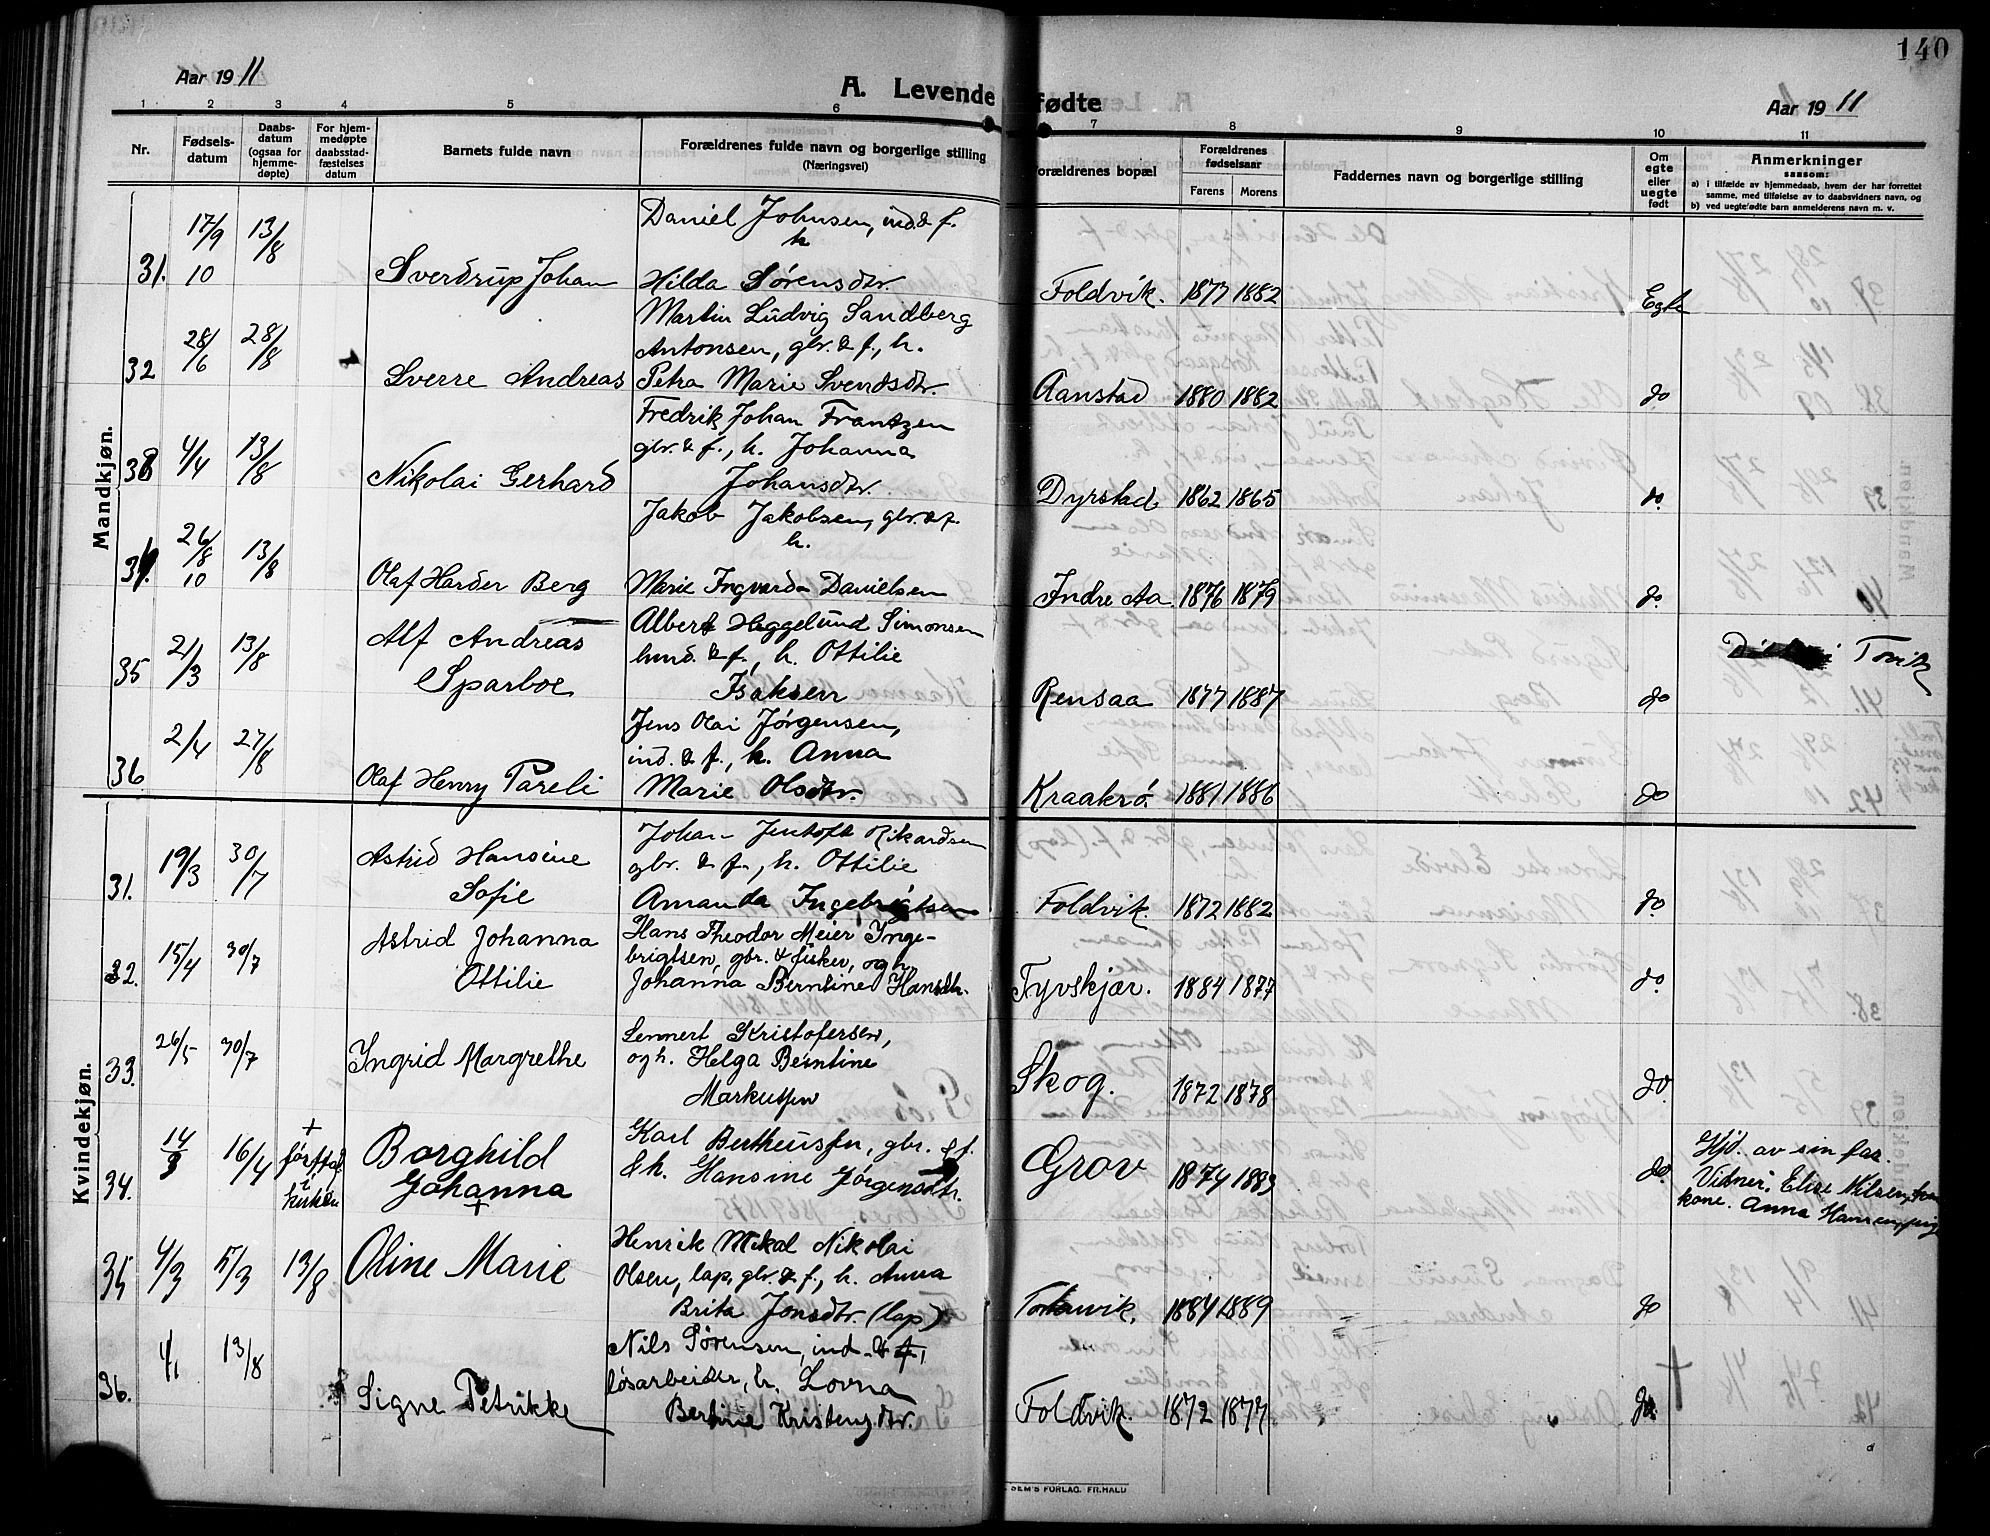 140
Aar 1911
A. Levende fødte
Aar 1911
1 2 3 4 5 6 7 8 9 10 11
Nr.
Fødsels-
datum
Daabs-
datum
(ogsaa for
hjemme-
døpte)
For hjem-
medøpte
daabsstad-
fæstelses
datum
Barnets fulde navn
Forældrenes fulde navn og borgerlige stilling
(Næringsvei)
Forældrenes bopæl
Forældrenes
fødselsaar
Farens Morens
Faddernes navn og borgerlige stilling
Om
egte
eller
uegte
født
Anmerkninger
saasom:
a) i tilfælde av hjemmedaab, hvem der har forrettet
samme, med tilføielse av to daabsvidners navn, og
b) ved uegtefødte barn anmelderens navn m. v.
Mandkjøn.
Daniel Johnsen, ind. & f.
h.
31. 17/9 10 13/8 Sverdrup Johan Hilda Sørensdtr. Foldvik. 1877 1882 Egte
Martin Ludvig Sandberg
Antonsen, gbr. & f., h.
32 28/6 28/8 Sverre Andreas Petra Marie Svendsdtr. Aanstad 1880 1882 do
Fredrik Johan Frantzen
gbr. & f., h. Johanna
33 4/4 13/8 Nikolai Gerhard Johansdtr. Dyrstad 1862 1865 do.
Jakob Jakobsen, gbr. & f.
h.
34. 26/8 10 13/8 Olaf Harder Berg Marie Ingvarda Danielsen Indre Aa. 1876 1879 do.
Alf Andreas Albert Heggelund Simonsen
35 21/3 13/8 Sparboe & f., h. Ottilie
Isaksen Rensaa 1877 1887 do
Jens Olai Jørgensen,
ind. & f., h. Anna
36. 2/4 27/8 Olaf Henry Pareli Marie Olsdtr. Kraakrø. 1881 1886 do
Kvindekjøn.
Johan Jentoft Rikardsen
Astrid Hansine gbr. & f., h. Ottilie
31. 19/3 30/7 Sofie Amanda Ingebrigtsen Foldvik. 1872 1882 do.
Astrid Johanna Hans Theodor Meier Inge-
brigtsen, gbr. & fisker, og h.
32. 15/4 30/7 Ottilie Johanna Berntine Hansdtr. Tyvskjær. 1884 1877 do.
Lennert Kristofersen,
33. 26/5 30/7 Ingrid Margrethe og h. Helga Berntine
Markussen Skog. 1872 1878 do.
34. 14/3 16/4 + i kirken Borghild Karl Bertheussen, gbr. & f.
Johanna + & h. Hansine Jørgensdtr. Grov 1874 1883 do. Hjd. av sin far.
Vidner: Elise Nilsen,
kone. Anna Hansen, pige
Henrik Mikal Nikolai
35 4/3 5/3 13/8 Oline Marie Olsen, lap, gbr. & f., h. Anna
Brita Jonsdtr. (lap) 1884 1889 do
Nils Sørensen, ind. & f.,
løsarbeider, h. Lovna
36. 4/1 13/8 Signe Petrikke Bertine Kristensdtr. Foldvik. 1872 1877 do.
SEM'S FORLAG. FR.HALD